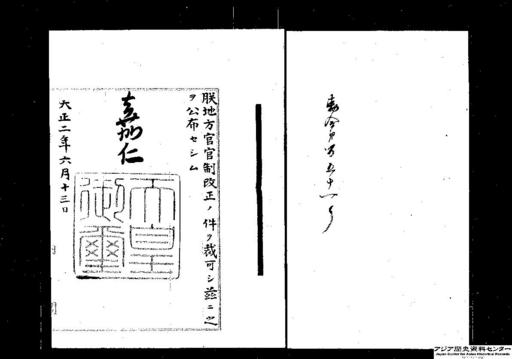 勅令第百五十一号
朕地方官官制改正ノ件ヲ裁可シ茲ニ之
ヲ公布セシム
嘉仁
天皇御璽
大正二年六月十三日
アジア歴史資料センター
Japan Center for Asian Historical Records